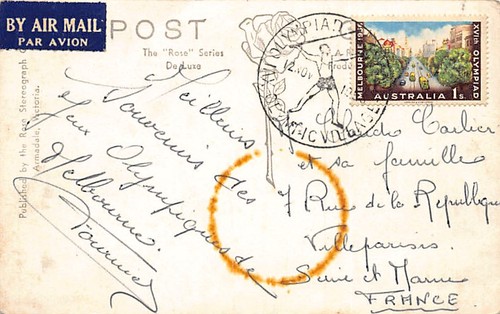 BY AIR MAIL
PAR AVION
POST
The "Rose" Series
De Luxe
A
Produ
Published by the Rose Stereograph
Armadale, Victoria.
OLYMPIA
12 NOV
MELBOURNE 1956
XVIth OLYMPIAD
AUSTRALIA 1s.
Meilleurs
Souvenirs des
Jeux Olympiques de
Melbourne.
Fournier
Carlier
et sa famille
7 Rue de la République
Villeparisis
Seine et Marne
FRANCE